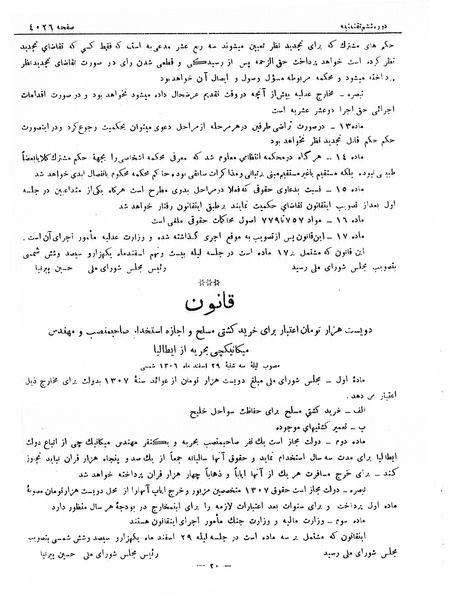 دوره ششم تقنینیه صفحه ٤٠٢٦
حکم های مشترك که برای تجدید نظر تعیین میشوند سه ربع عشر مدعی‌به است که فقط کسی که تقاضای تجدید
نظر کرده است خواهد پرداخت حق الزحمه پس از رسیدگی و قطعی شدن رای در صورت تقاضای تجدیدنظر
پرداخته میشود و محکمه مربوطه مسؤل وصول و ایصال آن خواهدبود
تبصره ـ مخارج عدلیه بیش‌از آنچه دروقت تقدیم عرضحال داده میشود نخواهد بود و در صورت اقدامات
اجرائی حق اجرا دوعشر عشریه است
ماده ۱۳ ـ درصورت تراضی طرفین درهرمرحله ازمراحل دعوی میتوان بحکمیت رجوع کرد و دراینصورت
حکم حکم قابل تجدید نظر نخواهد بود
ماده ۱٤ ـ هر گاه درمحکمه انتظامی معلوم شد که معرفی محکمه اشخاصی را بجهة حکم مشترك کلا یا بعضاً
طبیعی نبوده بلکه مستقیم یاغیرمستقیم مبنی برتبانی ومذاکرات سابقی بوده حاکم محکمه محکوم بانفصال ابدی خواهد شد
ماده ۱۵ ـ نسبت بدعاوی حقوقی که فعلا درمراحل بدوی مطرح است هرگاه یکی از متداعیین در جلسه
اول بعداز تصویب اینقانون تقاضای حکمیت نمایند برطبق اینقانون رفتار خواهد شد
ماده ۱٦ ـ مواد ۷۵۷ تا ۷۷۹ اصول محاکمات حقوقی ملغی است
ماده ۱۷ ـ این قانون پس ازتصویب به موقع اجری گذاشته شده و وزارت عدلیه مأمور اجرای آن است .
این قانون که مشتمل بر ۱۷ ماده است در جلسه لیله بیست ونهم اسفندماه یکهزارو سیصد وشش شمسی
بتصویب مجلس شورای ملی رسید رئیس مجلس شورای ملی ـ حسین پیرنیا
***
قانون
دویست هزار تومان اعتبار برای خرید کشتی مسلح و اجازه استخدام صاحبمنصب و مهندس
میکانیکچی بحریه از ایطالیا
مصوب لیلهٔ سه شنبهٔ ۲۹ اسفند ماه ۱۳۰٦ شمسی
مادهٔ اول ـ مجلس شورای ملی مبلغ دویست هزار تومان از عوائد سنهٔ ۱۳۰۷ بدولت برای مخارج ذیل
اعتبار می دهد .
الف ـ خرید کشتی مسلح برای حفاظت سواحل خلیج
ب ـ تعمیر کشتیهای موجوده
ماده دوم ـ دولت مجاز است یك نفر صاحبمنصب بحریه و یکنفر مهندس میکانیك چی از اتباع دولت
ایطالیا برای مدت سه سال استخدام نماید و حقوق آنها سالیانه جمعاً از یك صد و پنجاه هزار قران نباید تجاوز
کند ـ برای خرج مسافرت هر یك از آنها ایاباً و ذهاباً چهار هزار قران پرداخته خواهد شد
تبصره ـ دولت مجاز است حقوق ۱۳۰۷ متخصصین مزبور و خرج ایاب آنهارا از محل دویست هزارتومان مصوبهٔ
مادهٔ اول پرداخت و برای سنوات بعد اعتبارات لازمه را برای اینمخارج در بودجهٔ هر سال منظور دارد
ماده سوم ـ وزارت مالیه و وزارت جنگ مأمور اجرای اینقانون هستند
اینقانون که مشتمل بر سه ماده است در جلسه لیله ۲۹ اسفند ماه یکهزارو سیصد وشش شمسی بتصویب
مجلس شورای ملی رسید رئیس مجلس شورای ملی ـ حسین پیرنیا
ـ ۲۰ ـ